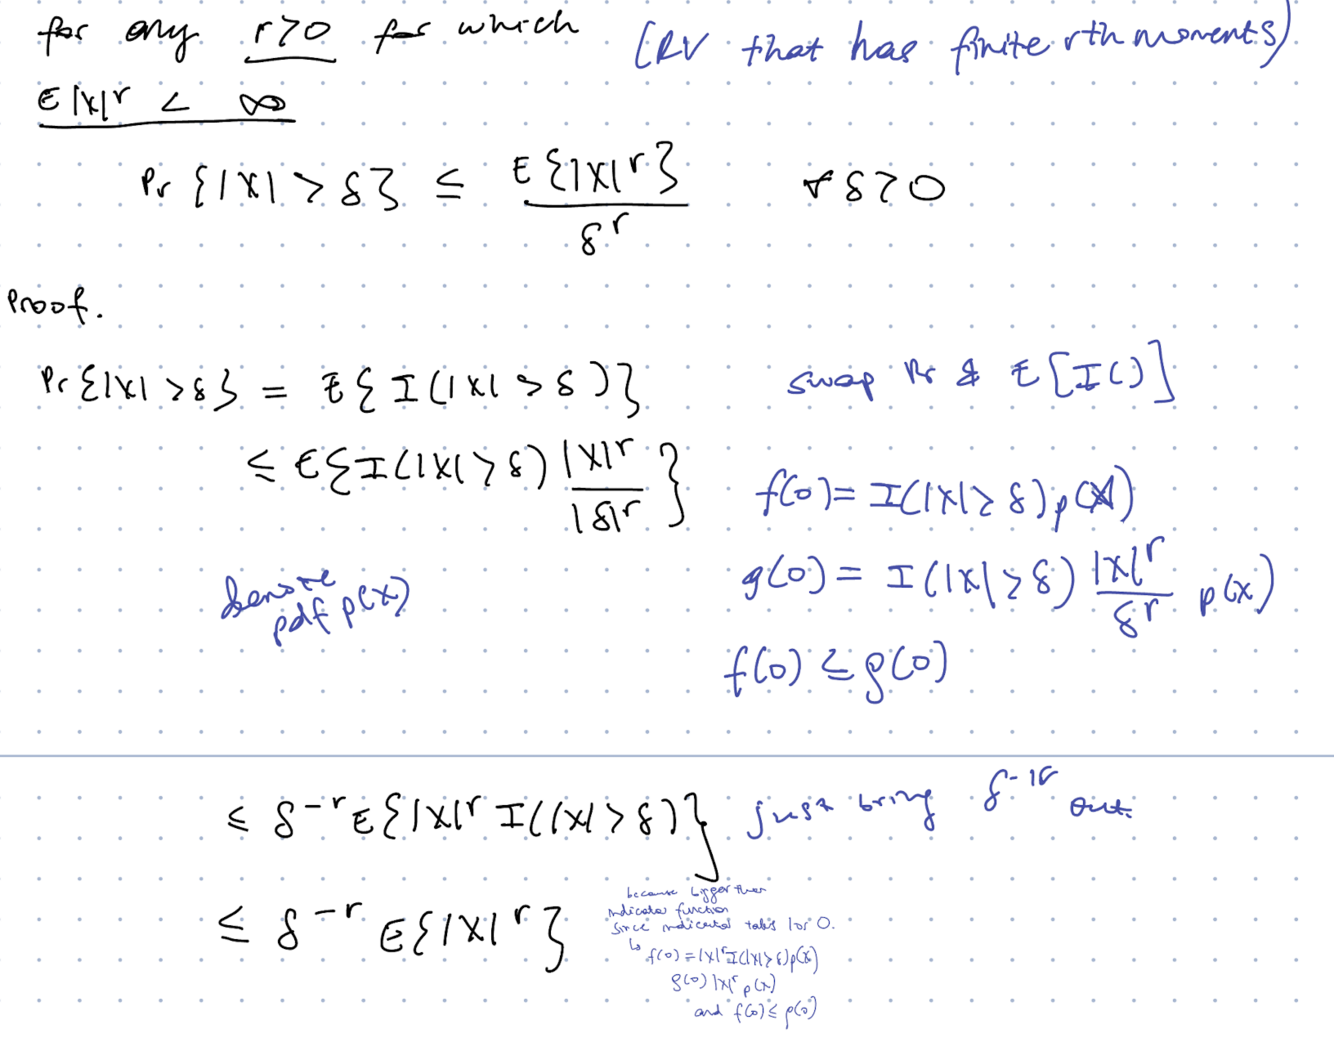 for any r>0 for which (RV that has finite rth moments)
E|X|^r < ∞
Pr{|X| > δ} ≤ E{|X|^r} / δ^r ∀ δ>0
Proof.
Pr{|X| > δ} = E{I(|X| > δ)} swap Pr & E[I()]
≤ E{I(|X| > δ) |X|^r / |δ|^r}
f(0) = I(|X| ≥ δ) p(X)
denote
pdf p(x)
g(0) = I(|X| > δ) |X|^r / δ^r p(x)
f(0) ≤ g(0)
≤ δ^-r E{|X|^r I(|X| > δ)} just bring out.
≤ δ^-r E{|X|^r}
because bigger than
indicator function
since indicator takes 1 or 0.
↳ f(0) = |X|^r I(|X| > δ) p(x)
g(0) |X|^r p(x)
and f(0) ≤ g(0)